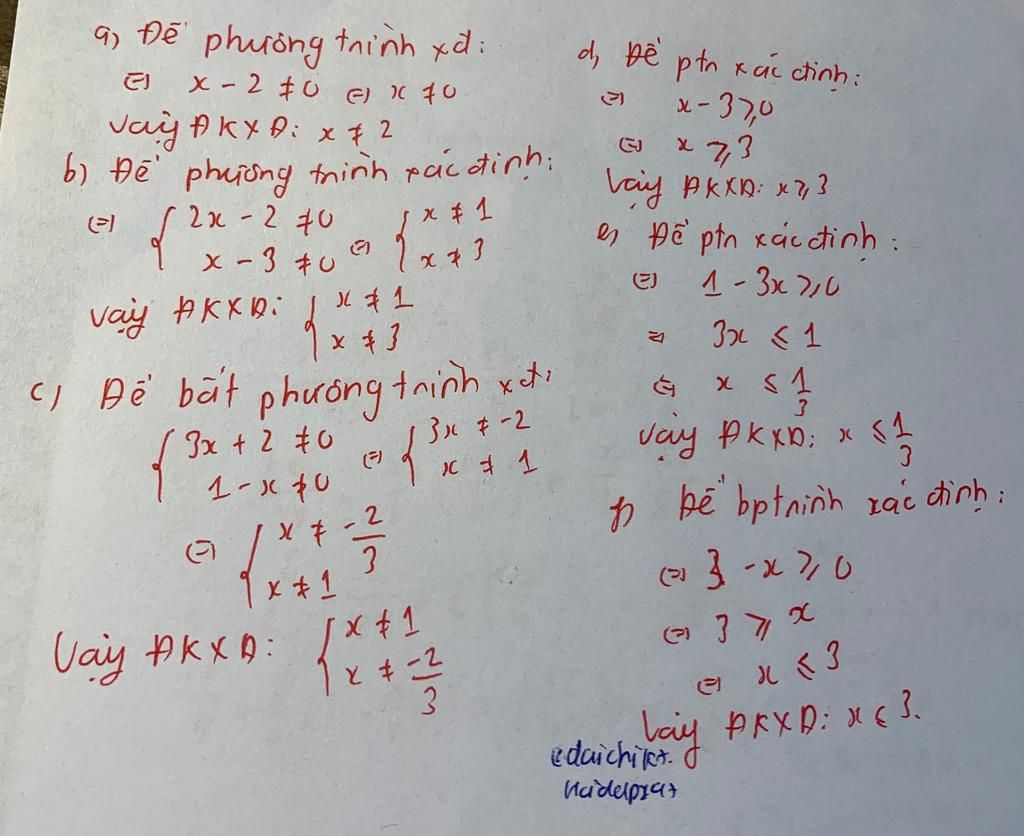 a) Để phương trình xđ:
(=) x - 2 ≠ 0 (=) x ≠ 0
Vậy ĐKXĐ: x ≠ 2
b) Để phương trình xác định:
(=) { 2x - 2 ≠ 0 (=) { x ≠ 1
x - 3 ≠ 0 x ≠ 3
Vậy ĐKXĐ: { x ≠ 1
x ≠ 3
c) Để bất phương trình xđ:
{ 3x + 2 ≠ 0 (=) { 3x ≠ -2
1 - x ≠ 0 x ≠ 1
(=) { x ≠ -2/3
x ≠ 1
Vậy ĐKXĐ: { x ≠ 1
x ≠ -2/3
d) Để ptr xác định:
(=) x - 3 ⩾ 0
(=) x ⩾ 3
Vậy ĐKXĐ: x ⩾ 3
e) Để ptr xác định:
(=) 1 - 3x ⩾ 0
(=) 3x ⩽ 1
(=) x ⩽ 1/3
Vậy ĐKXĐ: x ⩽ 1/3
f) Để bptrình xác định:
(=) 3 - x ⩾ 0
(=) 3 ⩾ x
(=) x ⩽ 3
Vậy ĐKXĐ: x ⩽ 3.